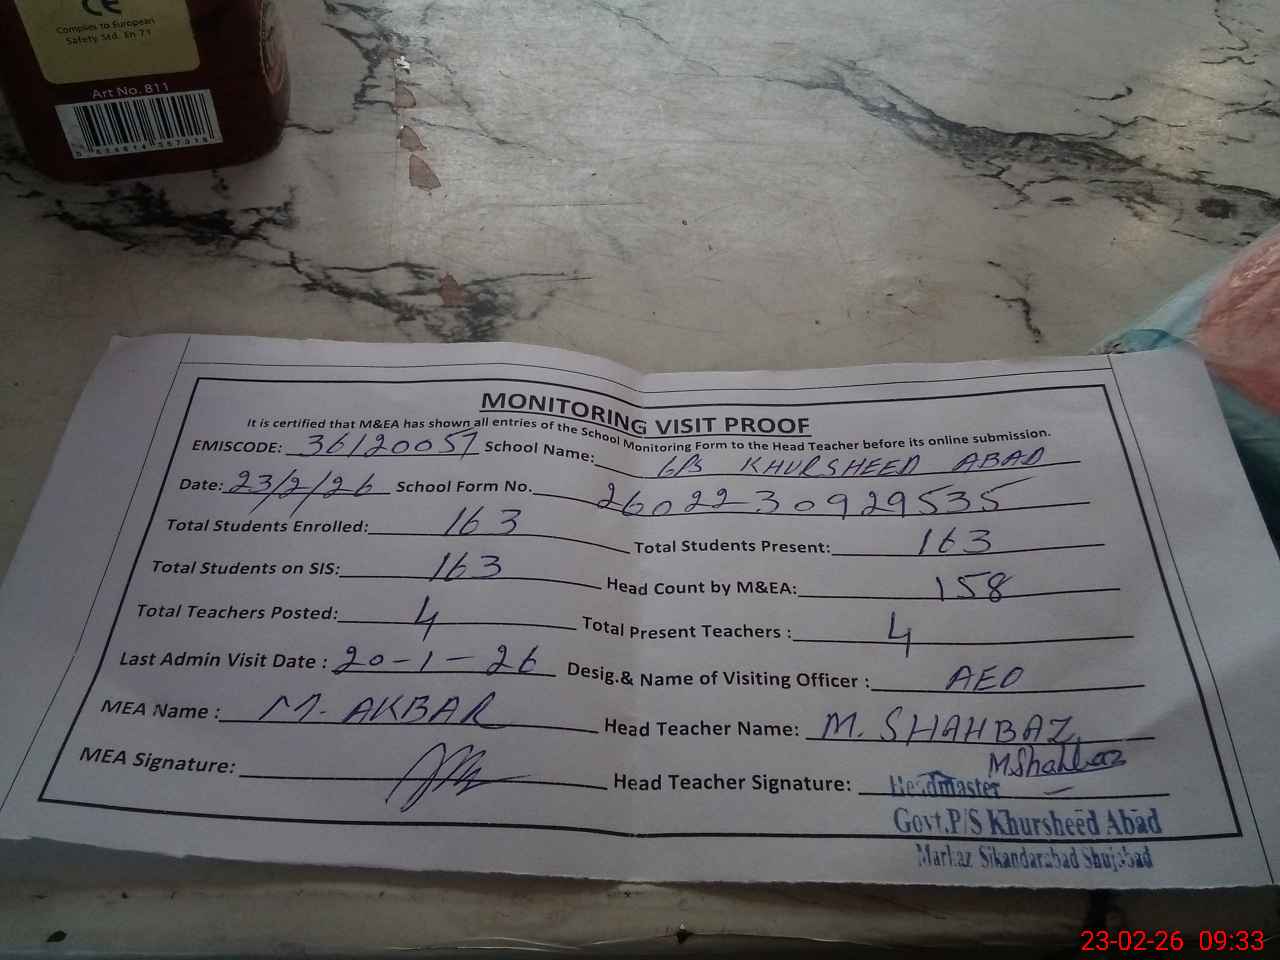 CE
Complies to European
Safety Std. En 71
Art No. 811
MONITORING VISIT PROOF
It is certified that M&EA has shown all entries of the School Monitoring Form to the Head Teacher before its online submission.
EMISCODE: 36120057 School Name: GPS KHURSHEED ABAD
Date: 23/2/26 School Form No. 26022 30929535
Total Students Enrolled: 163 Total Students Present: 163
Total Students on SIS: 163 Head Count by M&EA: 158
Total Teachers Posted: 4 Total Present Teachers : 4
Last Admin Visit Date : 20-1-26 Desig.& Name of Visiting Officer : AEO
MEA Name : M. AKBAR Head Teacher Name: M. SHAHBAZ
MEA Signature: Head Teacher Signature: MShahbaz
Headmaster
Govt.P/S Khursheed Abad
Markaz Sikandarabad Shujabad
23-02-26 09:33